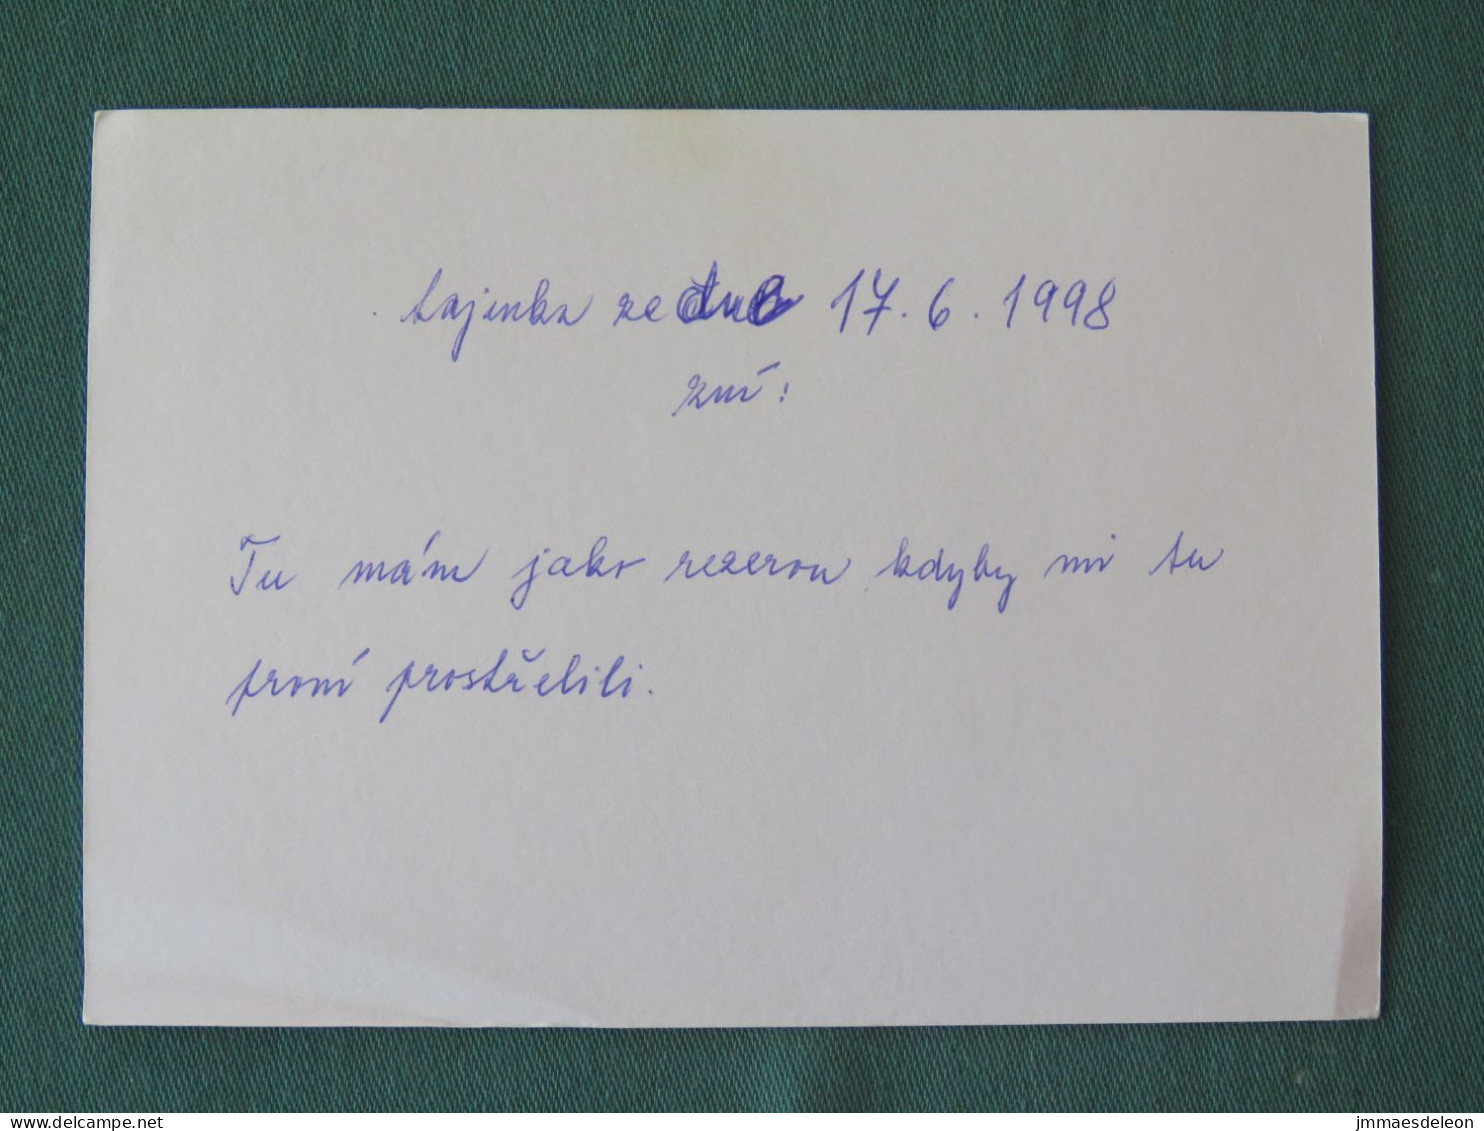 tajenka ze dne 17.6.1998
zní:
Tu mám jako rezervu kdyby mi tu
první prostřelili.
www.delcampe.net
jmmaesdeleon